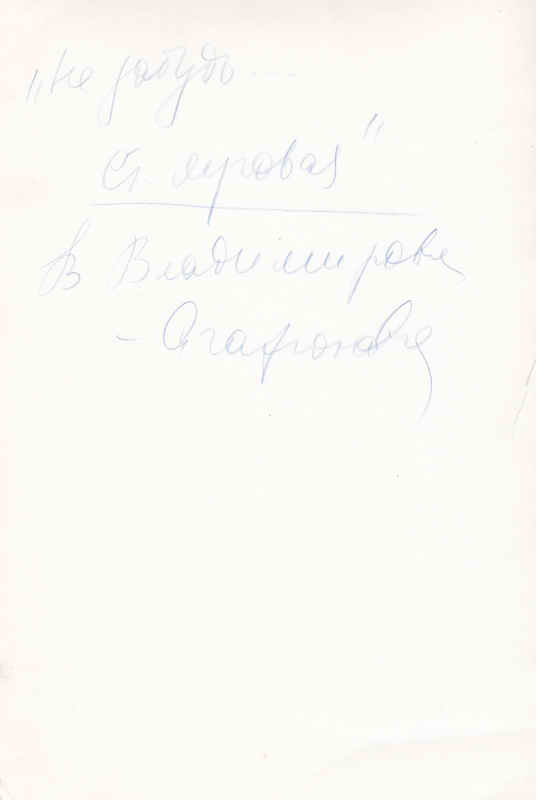 „Не забудь...
ст. Луговая"
В Владимирова
- Агафонова